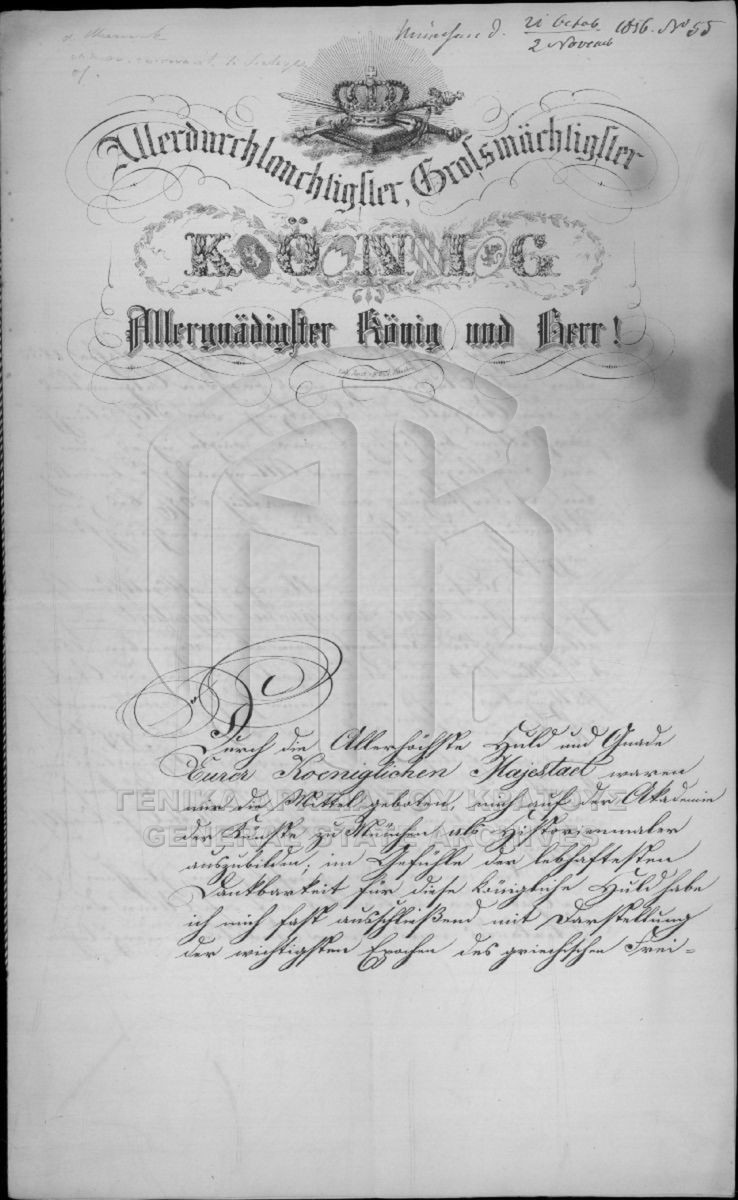 München d. 21 Octob. 1856. No 55
2 Novemb
Allerdurchlauchtigster, Grossmächtigster
KÖNIG
Allergnädigster König und Herr!
Durch die Allerhöchste Huld und Gnade
Eurer Koeniglichen Majestaet waren
mir die Mittel geboten, mich auf der Akademie
der Künste zu München als Historienmaler
auszubilden; im Gefühle der lebhaftesten
Dankbarkeit für diese königliche Huld habe
ich mich fast ausschließend mit Darstellung
der wichtigsten Epochen des griechischen Frei-
ΓΕΝΙΚΑ ΑΡΧΕΙΑ ΤΟΥ ΚΡΑΤΟΥΣ
GENERAL STATE ARCHIVES